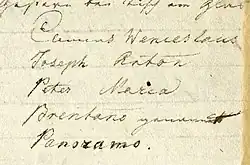 Clemens Wenceslaus
Joseph Anton
Peter Maria
Brentano genannt
Panozamo.